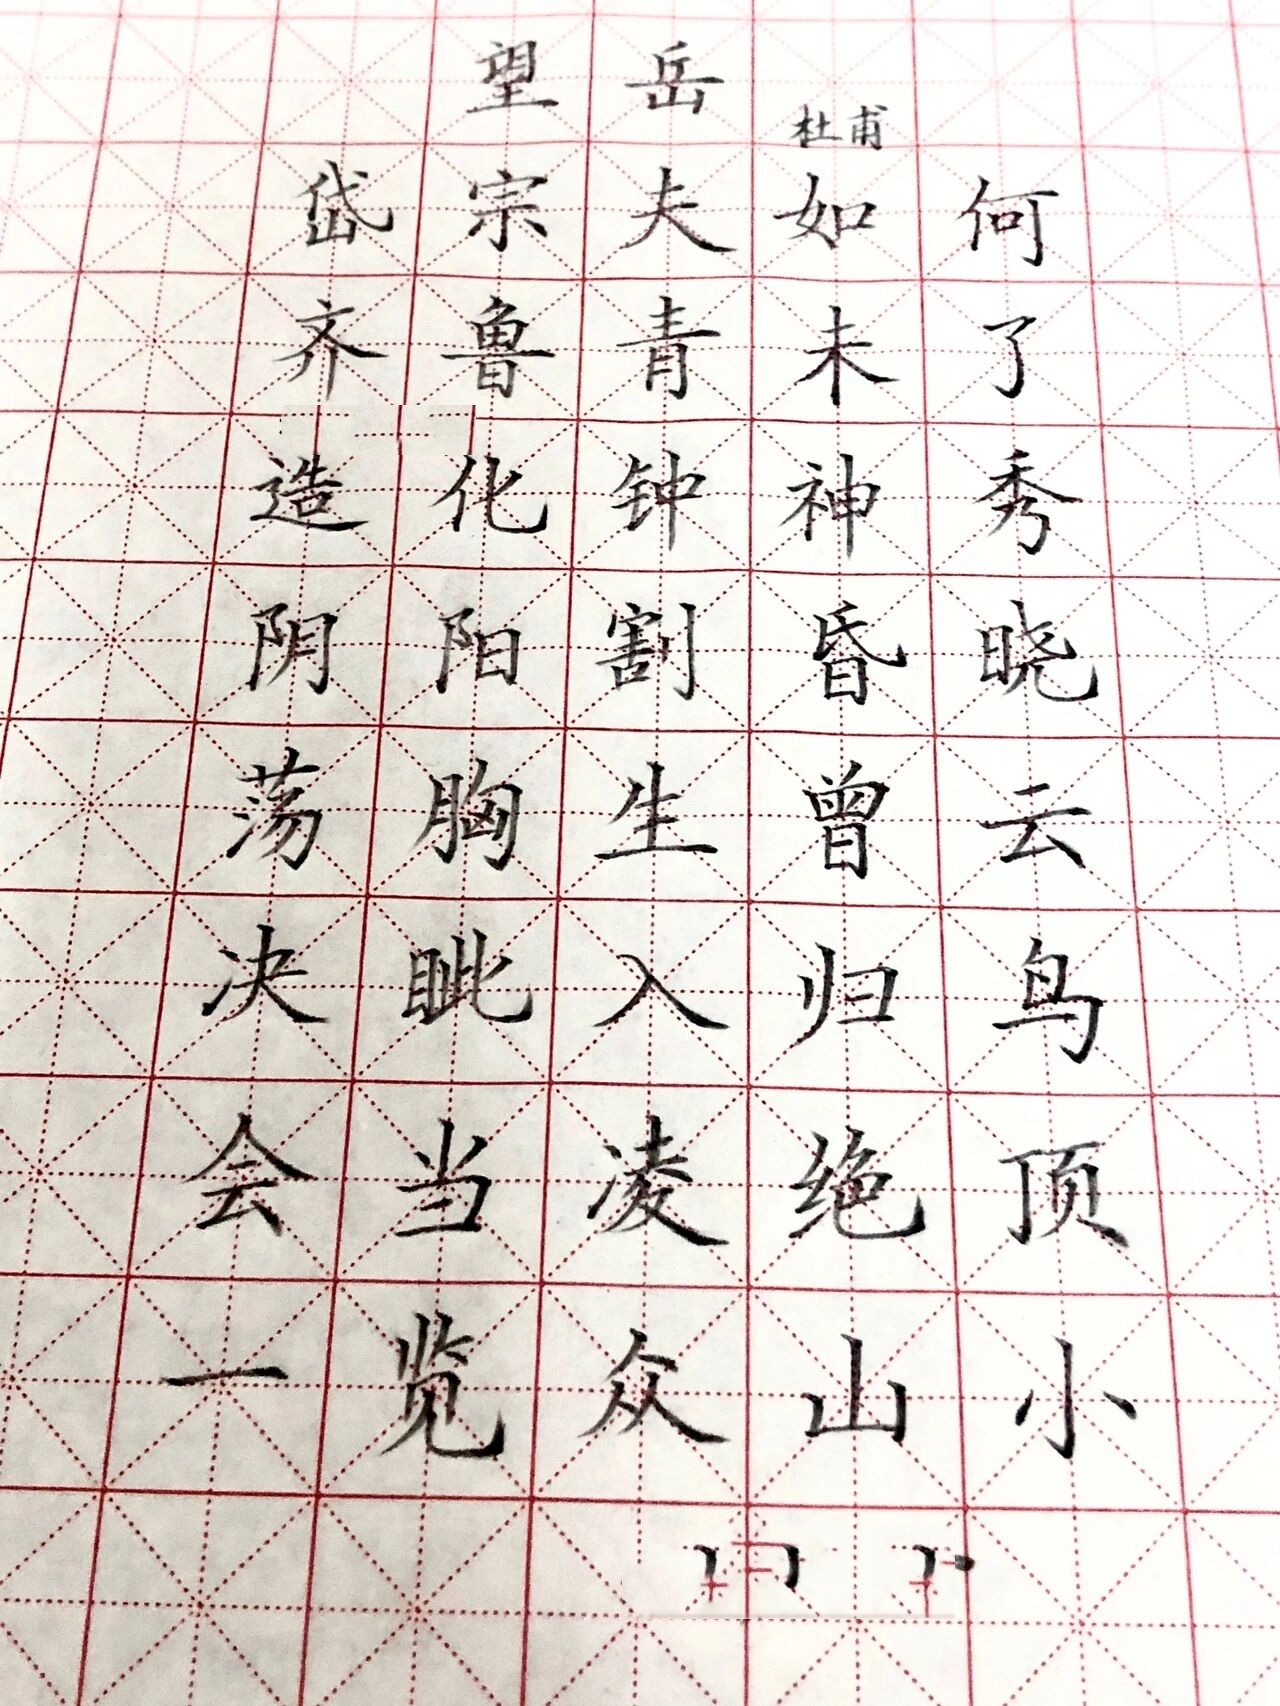 望岳
杜甫
岱宗夫如何
齐鲁青未了
造化钟神秀
阴阳割昏晓
荡胸生曾云
决眦入归鸟
会当凌绝顶
一览众山小